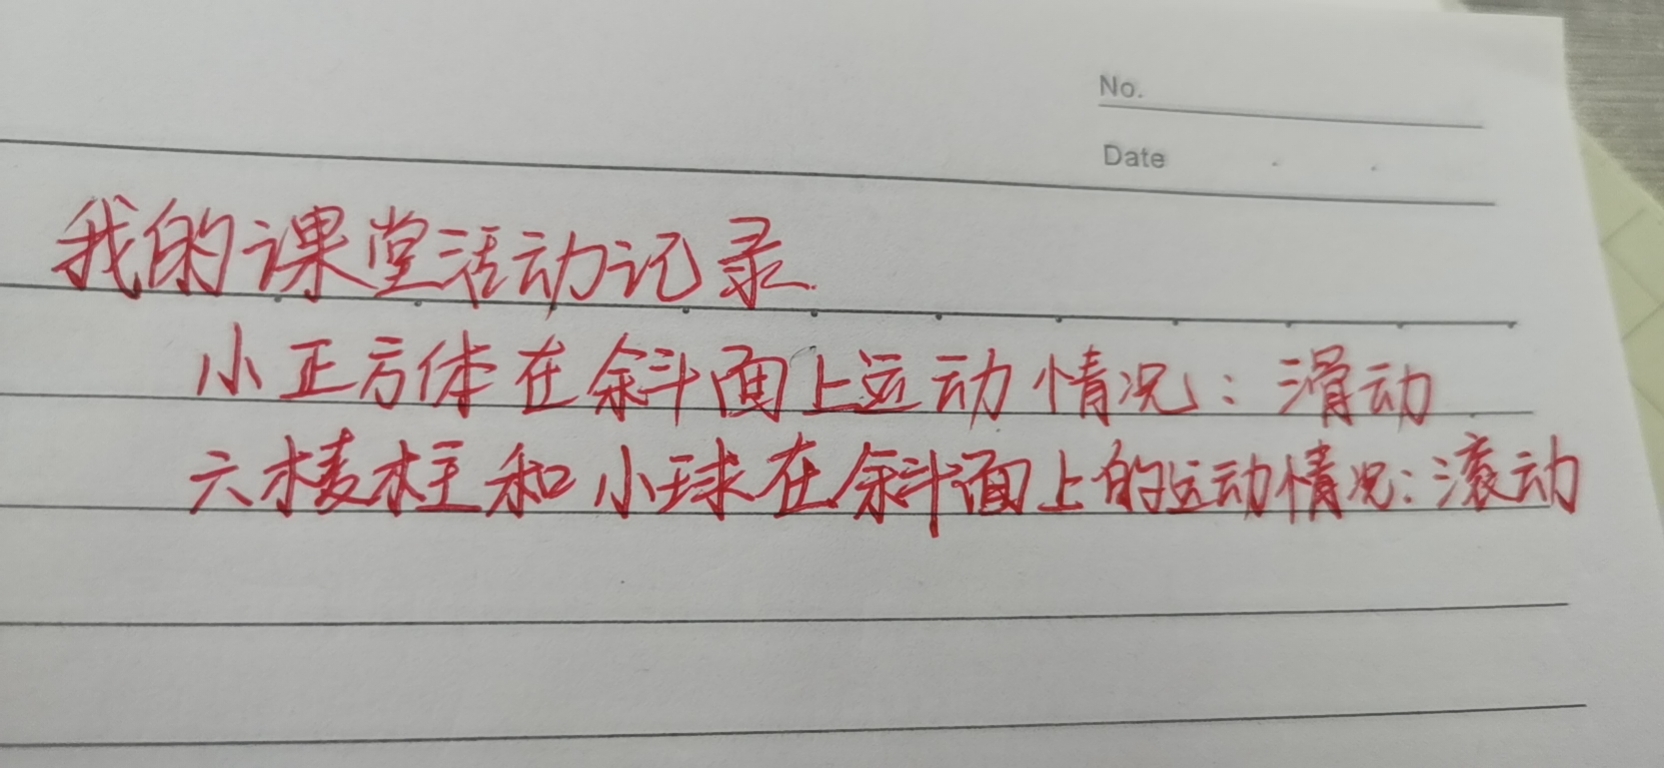 No.
Date
我的课堂活动记录
小正方体在斜面上运动情况：滑动
六棱柱和小球在斜面上的运动情况：滚动